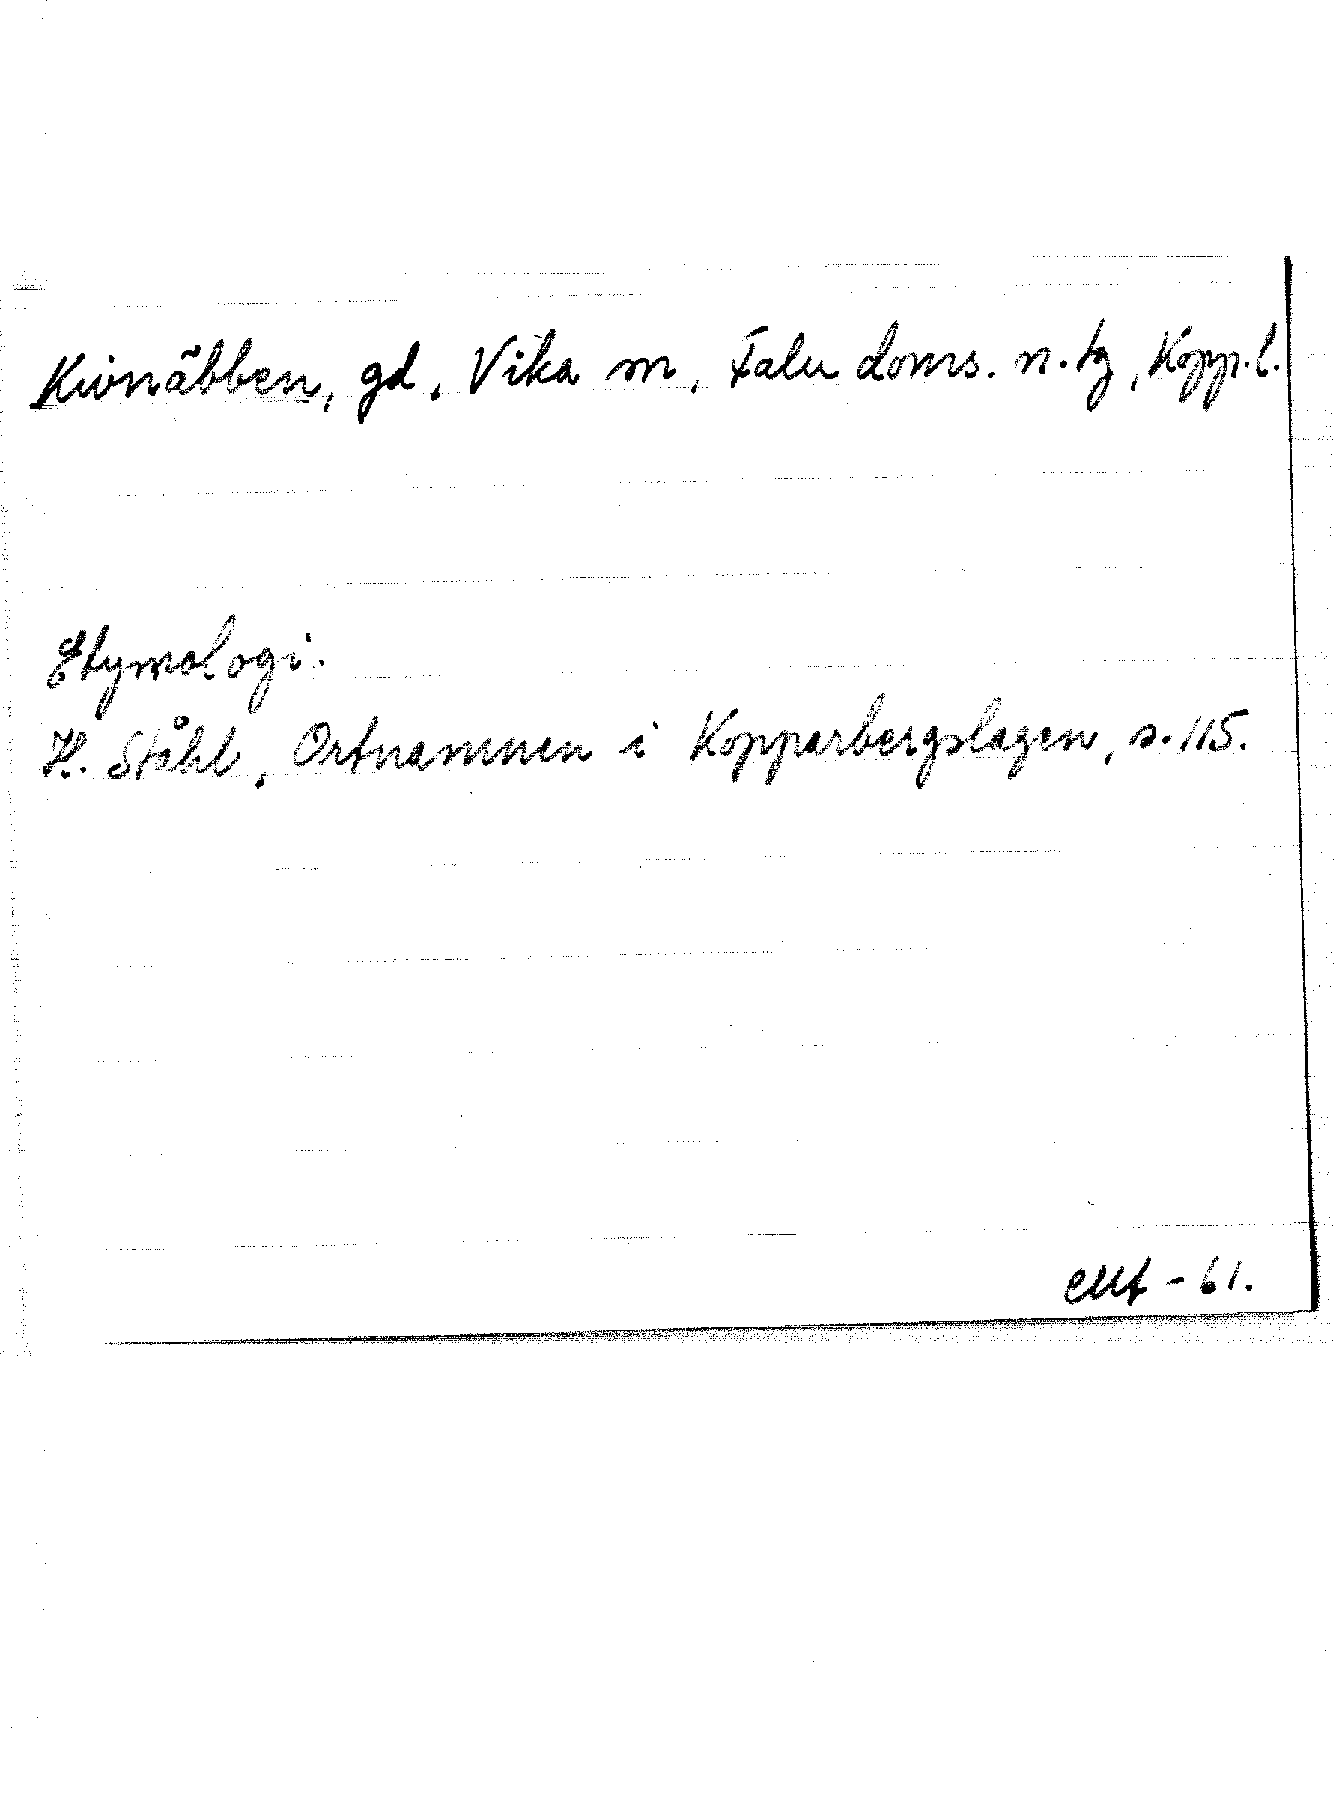 Kvonäbben, gd, Vika sn, Falu doms. n. tg, Kopp. l.
Etymologi.
H. Ståhl, Ortnamnen i Kopparbergslagen, s. 115.
-61.